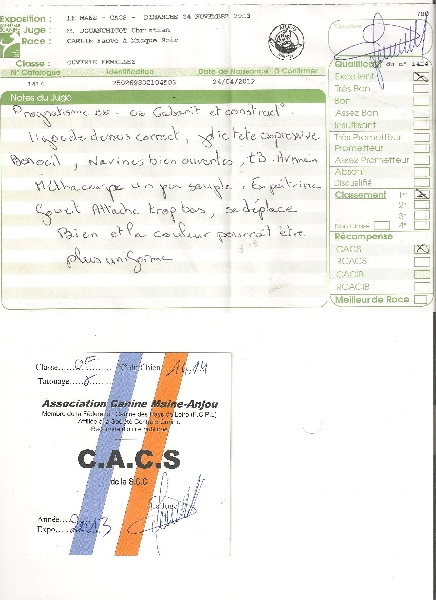 Exposition : LE MANS - CACS - DIMANCHE 24 NOVEMBRE 2013
Juge : M. DOUANCHITOT Christian
Race : CARLIN Fauve à Masque Noir
Classe : OUVERTE FEMELLES
N° Catalogue Identification Date de Naissance à Confirmer
1414 24/04/2012
Notes du Juge
Prognathisme ok - ok Gabarit et construct°
ligne de dessus correct, jolie tête expressive
Bon oeil, Narines bien ouvertes, tB. Avmain
Métacarpe un peu souple. Expoitrine
Fouet Attache trop bas, se déplace
Bien et la couleur pourrait être
plus uniforme
Signature
Qualificatif du n° 1414
Excellent X
Très Bon
Bon
Assez Bon
Insuffisant
Très Prometteur
Prometteur
Assez Prometteur
Absent
Disqualifié
Classement 1er X
2e
3e
Non Classé 4e
Récompense
CACS X
RCACS
CACIB
RCACIB
Meilleur de Race
Classe OF N° du chien 1414
Tatouage
Association Canine Maine-Anjou
Membre de la Fédération Canine des Pays de Loire (F.C.P.L)
Affiliée à la Société Centrale Canine
Reconnue d'utilité publique
C.A.C.S
de la S.C.C
Le Juge
Année 2013
Expo